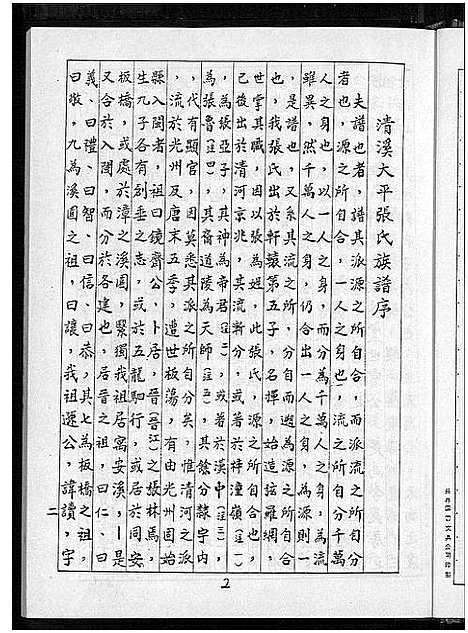 清溪大平張氏族譜序
夫譜也者，譜其派源之所自合，而派流之所自分
者也，源之所自合，一人之身也，流之所自分千萬
人之身也，以一人之身，而分為千萬人之身，為流
雖異，然千萬人之身，仍合出一人之身，為源則一
，是譜也，又系其流之所，分自而遡為源之所自合
也，我張氏出於軒轅第五子，名揮，始造弦羅網，
世掌其職，因以張為姓，此張氏，源之所自合也，
已後出於清河京兆，其流漸分，或著於梓潼嶺(注一)
，為張亞子，其神為帝君(注二)，或著於漢中(注三)，
為張魯(注四)，其裔道陵為天師(注五)，其餘分隸宇內
，代有顯官，因莫悉其派之所自分矣，惟清河之派
，流於光州及唐末五季，遭世板蕩，有由光州固始
縣入閩者，祖曰鏡齊公，卜居，晉(晉江)之張林焉，
生九子各有創垂之志，或於五龍駒行，或居於同安
板橋，或處於漳之溪園，緊獨我祖居寓安溪，是
又合於入閩，而分於各建也，居晉之祖，曰仁、曰
義、曰禮、曰智、曰信、曰恭，其七為板橋之祖，
曰敬，九為溪園之祖，曰讓，我祖遜公，諱讀，字
二
2